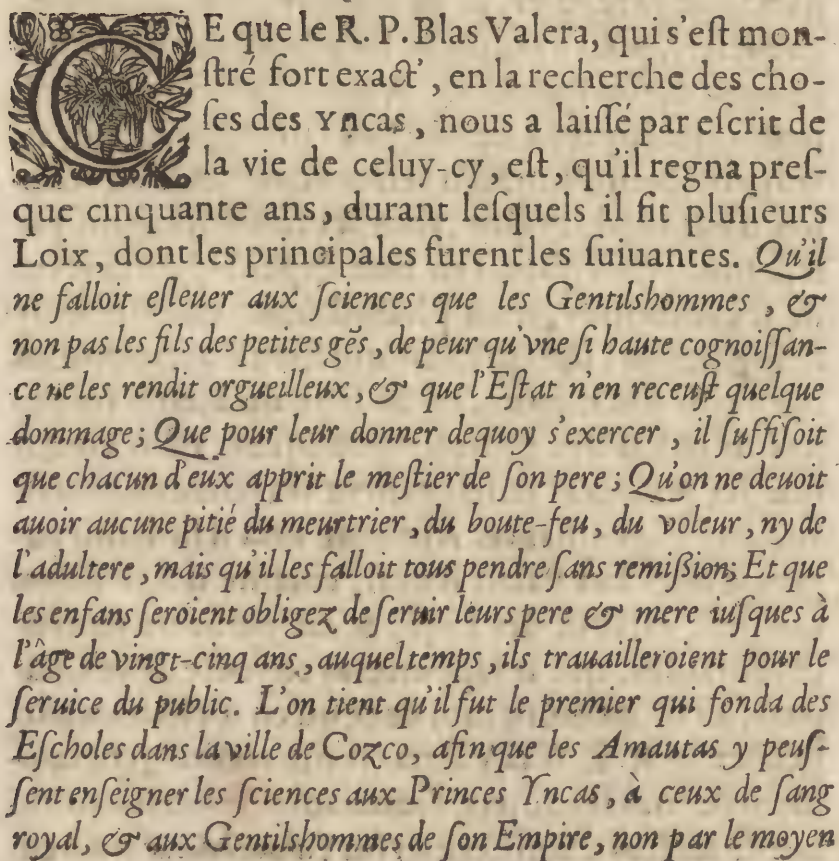 CE que le R. P. Blas Valera, qui s'eſt mon-
ſtré fort exact', en la recherche des cho-
ſes des Yncas, nous a laiſſé par eſcrit de
la vie de celuy-cy, eſt, qu'il regna preſ-
que cinquante ans, durant leſquels il fit pluſieurs
Loix, dont les principales furent les ſuiuantes. Qu'il
ne falloit eſleuer aux ſciences que les Gentilshommes, &
non pas les fils des petites gẽs, de peur qu'vne ſi haute cognoiſſan-
ce ne les rendit orgueilleux, & que l'Eſtat n'en receuſt quelque
dommage; Que pour leur donner dequoy s'exercer, il ſuffiſoit
que chacun d'eux apprit le meſtier de ſon pere; Qu'on ne deuoit
auoir aucune pitié du meurtrier, du boute-feu, du voleur, ny de
l'adultere, mais qu'il les falloit tous pendre ſans remiſſion; Et que
les enfans ſeroient obligez de ſeruir leurs pere & mere iuſques à
l'âge de vingt-cinq ans, auquel temps, ils trauailleroient pour le
ſeruice du public. L'on tient qu'il fut le premier qui fonda des
Eſcholes dans la ville de Cozco, afin que les Amautas y peuſ-
ſent enſeigner les ſciences aux Princes Yncas, à ceux de ſang
royal, & aux Gentilshommes de ſon Empire, non par le moyen